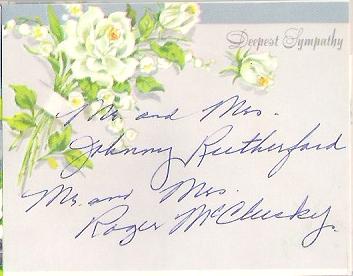 Deepest Sympathy
Mr. and Mrs.
Johnny Rutherford
Mr. and Mrs.
Roger McClusky.